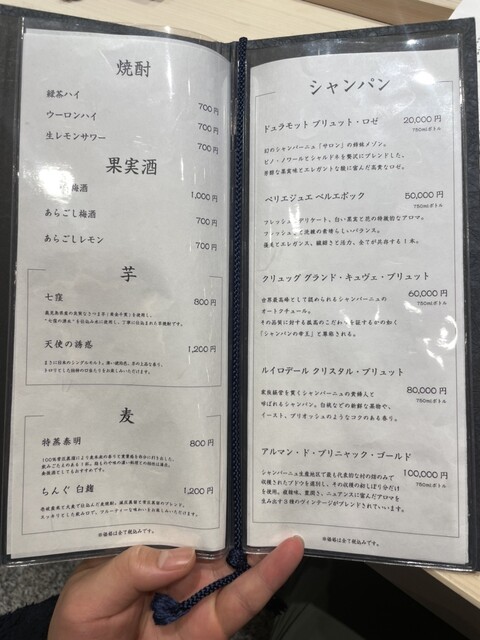 焼酎
緑茶ハイ
700円
ウーロンハイ
700円
生レモンサワー
700円
果実酒
梅酒
1,000円
あらごし梅酒
700円
あらごしレモン
700円
芋
七窪
800円
天使の誘惑
1,200円
麦
特蒸泰明
800円
ちんぐ 白麹
1,200円
※価格は全て税込みです。
シャンパン
デュラモット ブリュット・ロゼ
20,000円
750mlボトル
幻のシャンパーニュ「サロン」の姉妹メゾン。
ピノ・ノワールとシャルドネを贅沢にブレンドした。
芳醇な果実味とエレガントな酸に富んだ高貴なロゼ。
ペリエジュエ ベルエポック
50,000円
750mlボトル
フレッシュ、デリケート、白い果実と花の特徴的なアロマ。
優美とエレガンス、繊細さと活力、全てが共存する1本。
クリュッグ グランド・キュヴェ・ブリュット
60,000円
750mlボトル
世界最高峰として認められるシャンパーニュの
オートクチュール。
その品質に対する孤高のこだわりを証するかの如く
「シャンパンの帝王」と尊称される。
ルイロデール クリスタル・ブリュット
80,000円
750mlボトル
家族経営を貫くシャンパーニュの貴婦人と
呼ばれるシャンパン。白桃などの新鮮な果物や、
イースト、ブリオッシュのようなコクのある香り。
アルマン・ド・ブリニャック・ゴールド
100,000円
750mlボトル
シャンパーニュ生産地区で最も代表的な村の畑のみで
収穫されたブドウを選別し、その収穫の初しぼり分だけ
を使用。複雑味、重厚さ、ニュアンスに富んだアロマを
生み出す3種のヴィンテージがブレンドされていいます。
※価格は全て税込みです。